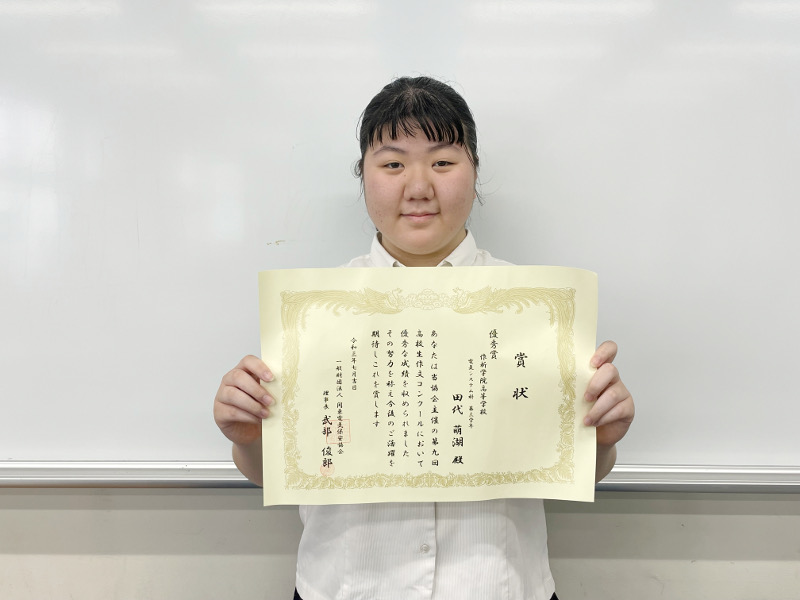 賞状
優秀賞
作新学院高等学校
電気システム科 第三学年
田代 萌湖 殿
あなたは当協会主催の第九回
高校生作文コンクールにおいて
優秀な成績を収められました
その努力を称え今後のご活躍を
期待しこれを賞します
令和三年七月吉日
一般財団法人 関東電気保安協会
理事長 武部 俊郎